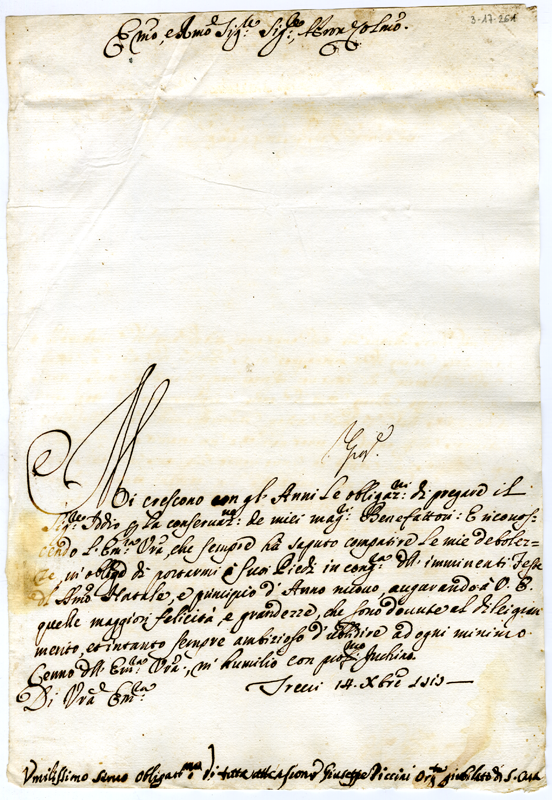 3-17-26
Em̃o, e Rmo Sig.re Sig.re, Pron Colmo.
Mi crescono con gl'Anni le obligaz.ni di pregare il
Sig.re Iddio p la conservaz.ne de miei mag.ri Benefattori: E riconos-
cendo l'Em.za Vrã, che sempre hà saputo compatire le mie debolez-
ze, m'obligo di portarmi à suoi Piedi in cong.ra dll'imminenti Feste
dl SSmo Natale, e principio d'Anno nuouo, augurando à V. E.
quelle maggiori felicità e grandezze, che sono douute al di lei gran
merito, et intanto sempre ambizioso d'ubbidire ad ogni minimo
Cenno dll'Em.za Vrã, m'humilio con prof.mo Inchino.
Di Vrã Em.za 14 Xbre 1515
Vmilissimo Seruo Obligat.mo Giuseppe Piccini Org.ta giubilato di S.